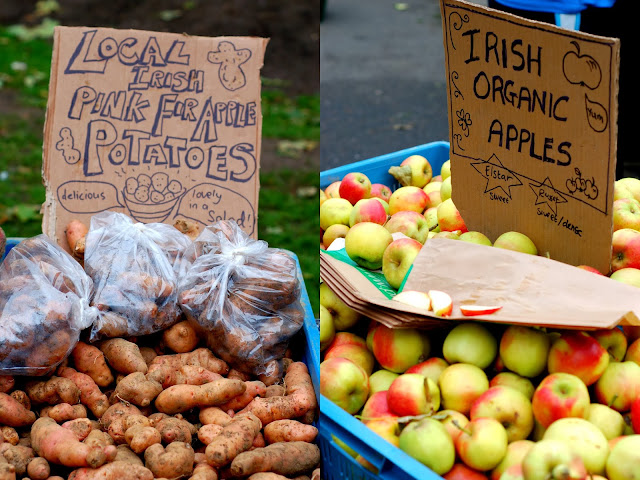 LOCAL
IRISH
PINK FIR APPLE
POTATOES
delicious
lovely in
a Salad!
IRISH
ORGANIC
APPLES
Yum
Elstar
Sweet
Sweet/dense